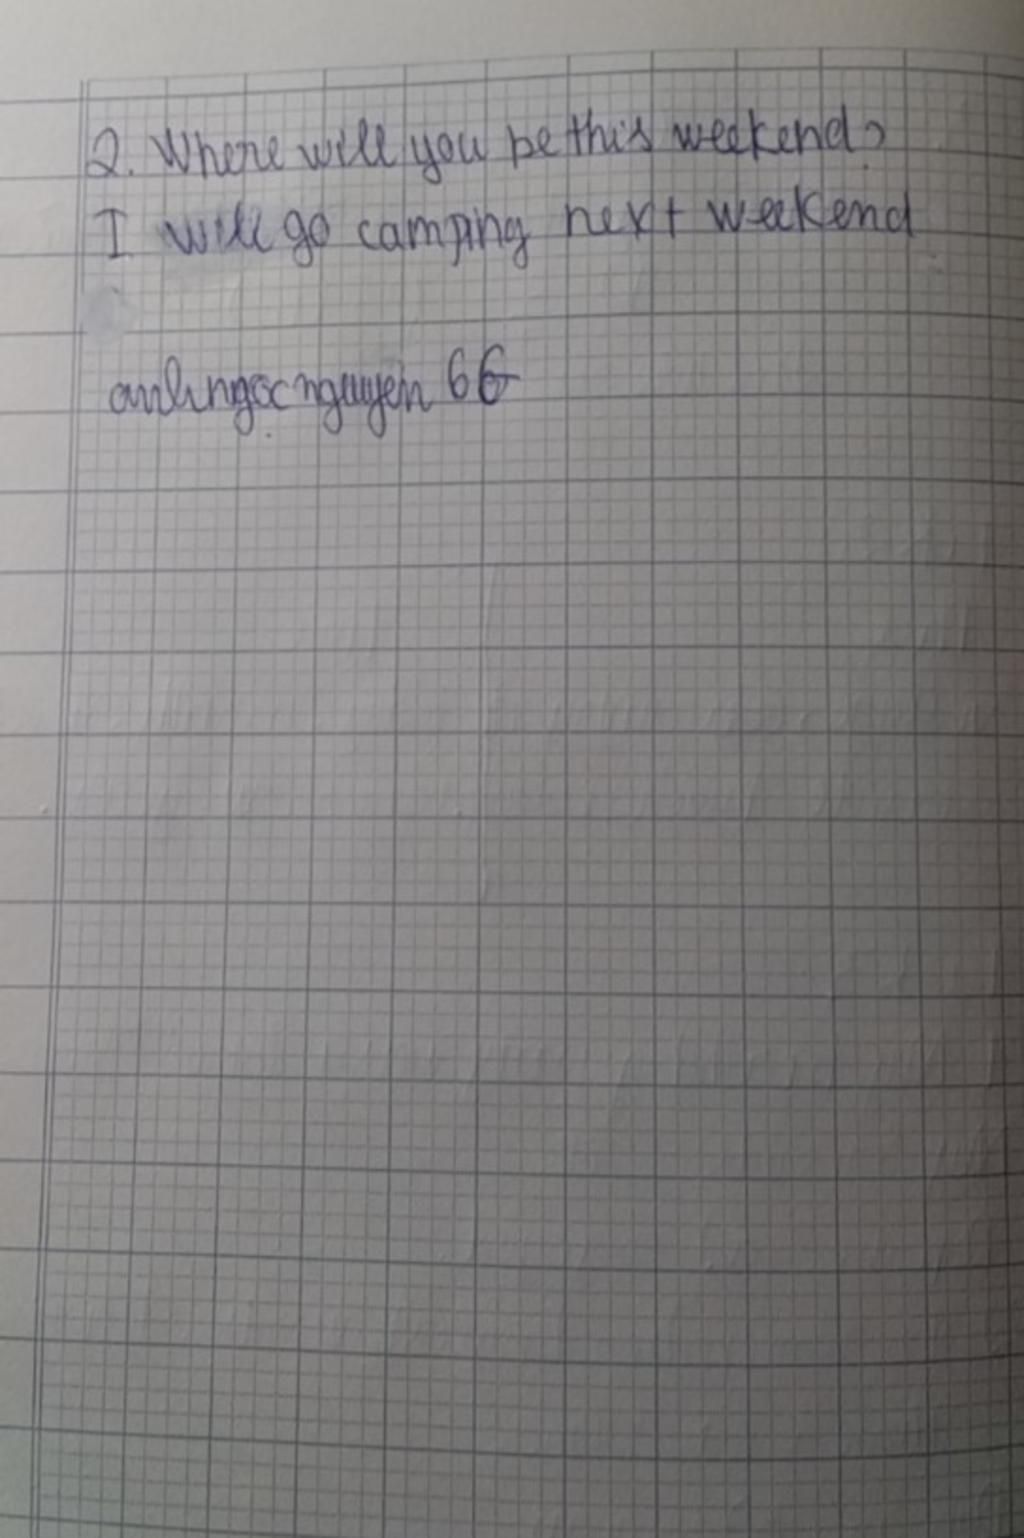 2. Where will you be this weekend?
I will go camping next weekend
anhngocnguyen 66